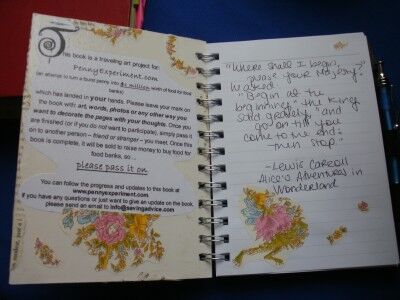 This book is a traveling art project for:
PennyExperiment.com
(an attempt to turn a burnt penny into $1 million worth of food for food
banks)
which has landed in your hands. Please leave your mark on
the book with: art, words, photos or any other way you
want to decorate the pages with your thoughts. Once you
are finished (or if you do not want to participate), simply pass it
on to another person – friend or stranger – you meet. Once this
book is complete, it will be sold to raise money to buy food for
food banks, so…
please pass it on
You can follow the progress and updates to this book at
www.pennyexperiment.com
If you have any questions or just want to give an update on the book
please send an email to info@savingadvice.com
"Where shall I begin,
please your Majesty?"
he asked.
"Begin at the
beginning," the King
said gravely, "and
go on till you
come to the end:
then stop."
-Lewis Carroll
Alice's Adventures in
Wonderland